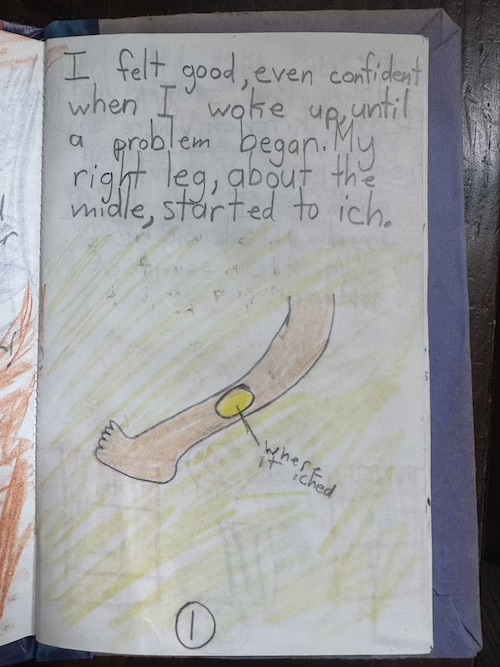 I felt good, even confident
when I woke up, until
a problem began. My
right leg, about the
midle, started to ich.
where
it iched
1